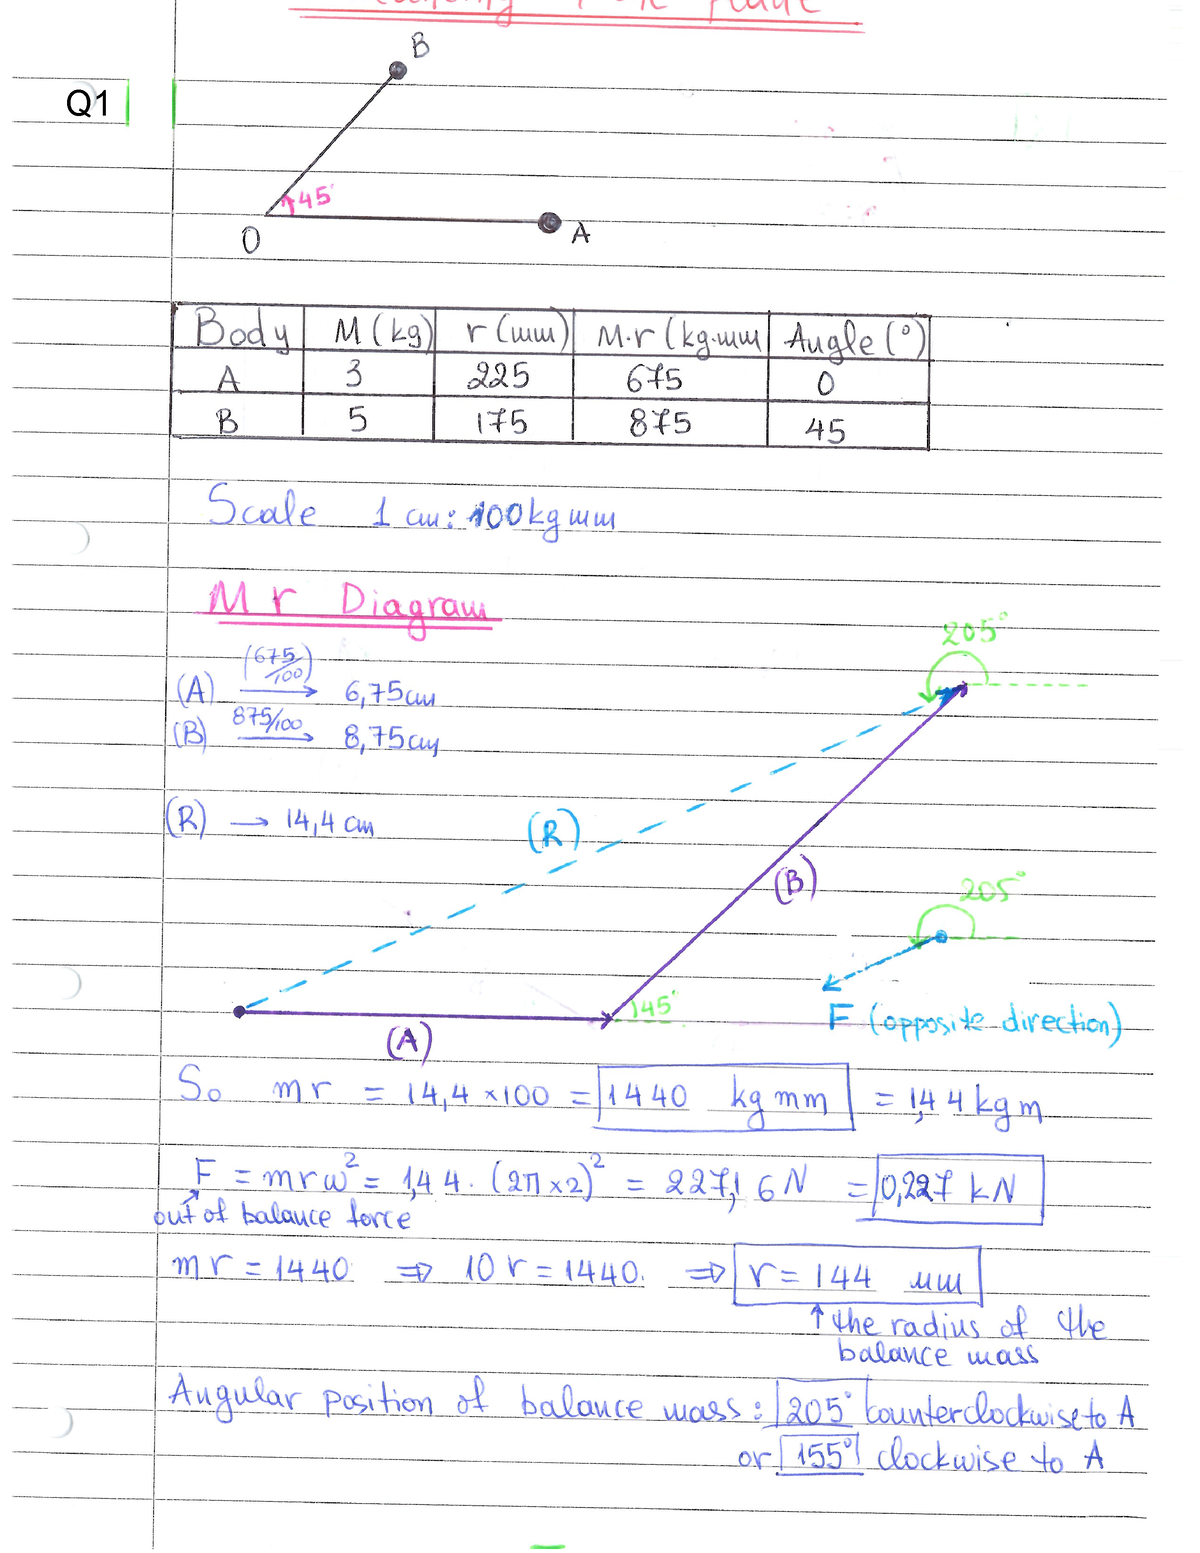 Plane
B
Q1
45°
O
A
Body M (kg) r (mm) M.r (kg.mm Angle (°)
A 3 225 675 0
B 5 175 875 45
Scale 1 cm: 100kg mm
Mr Diagram
205°
(A) (675/100) → 6,75cm
(B) 875/100 → 8,75cm
(R) → 14,4 cm
(R)
(B)
205°
45°
F (opposite direction)
(A)
So mr = 14,4 x100 = 1440 kg mm = 1,44 kg m
F = mrω² = 1,44. (2π x2)² = 227,16N = 0,227 kN
out of balance force
mr = 1440 ⇒ 10 r = 1440. ⇒ r = 144 mm
↑ the radius of the
balance mass
Angular position of balance mass: 205° counterclockwise to A
or 155° clockwise to A